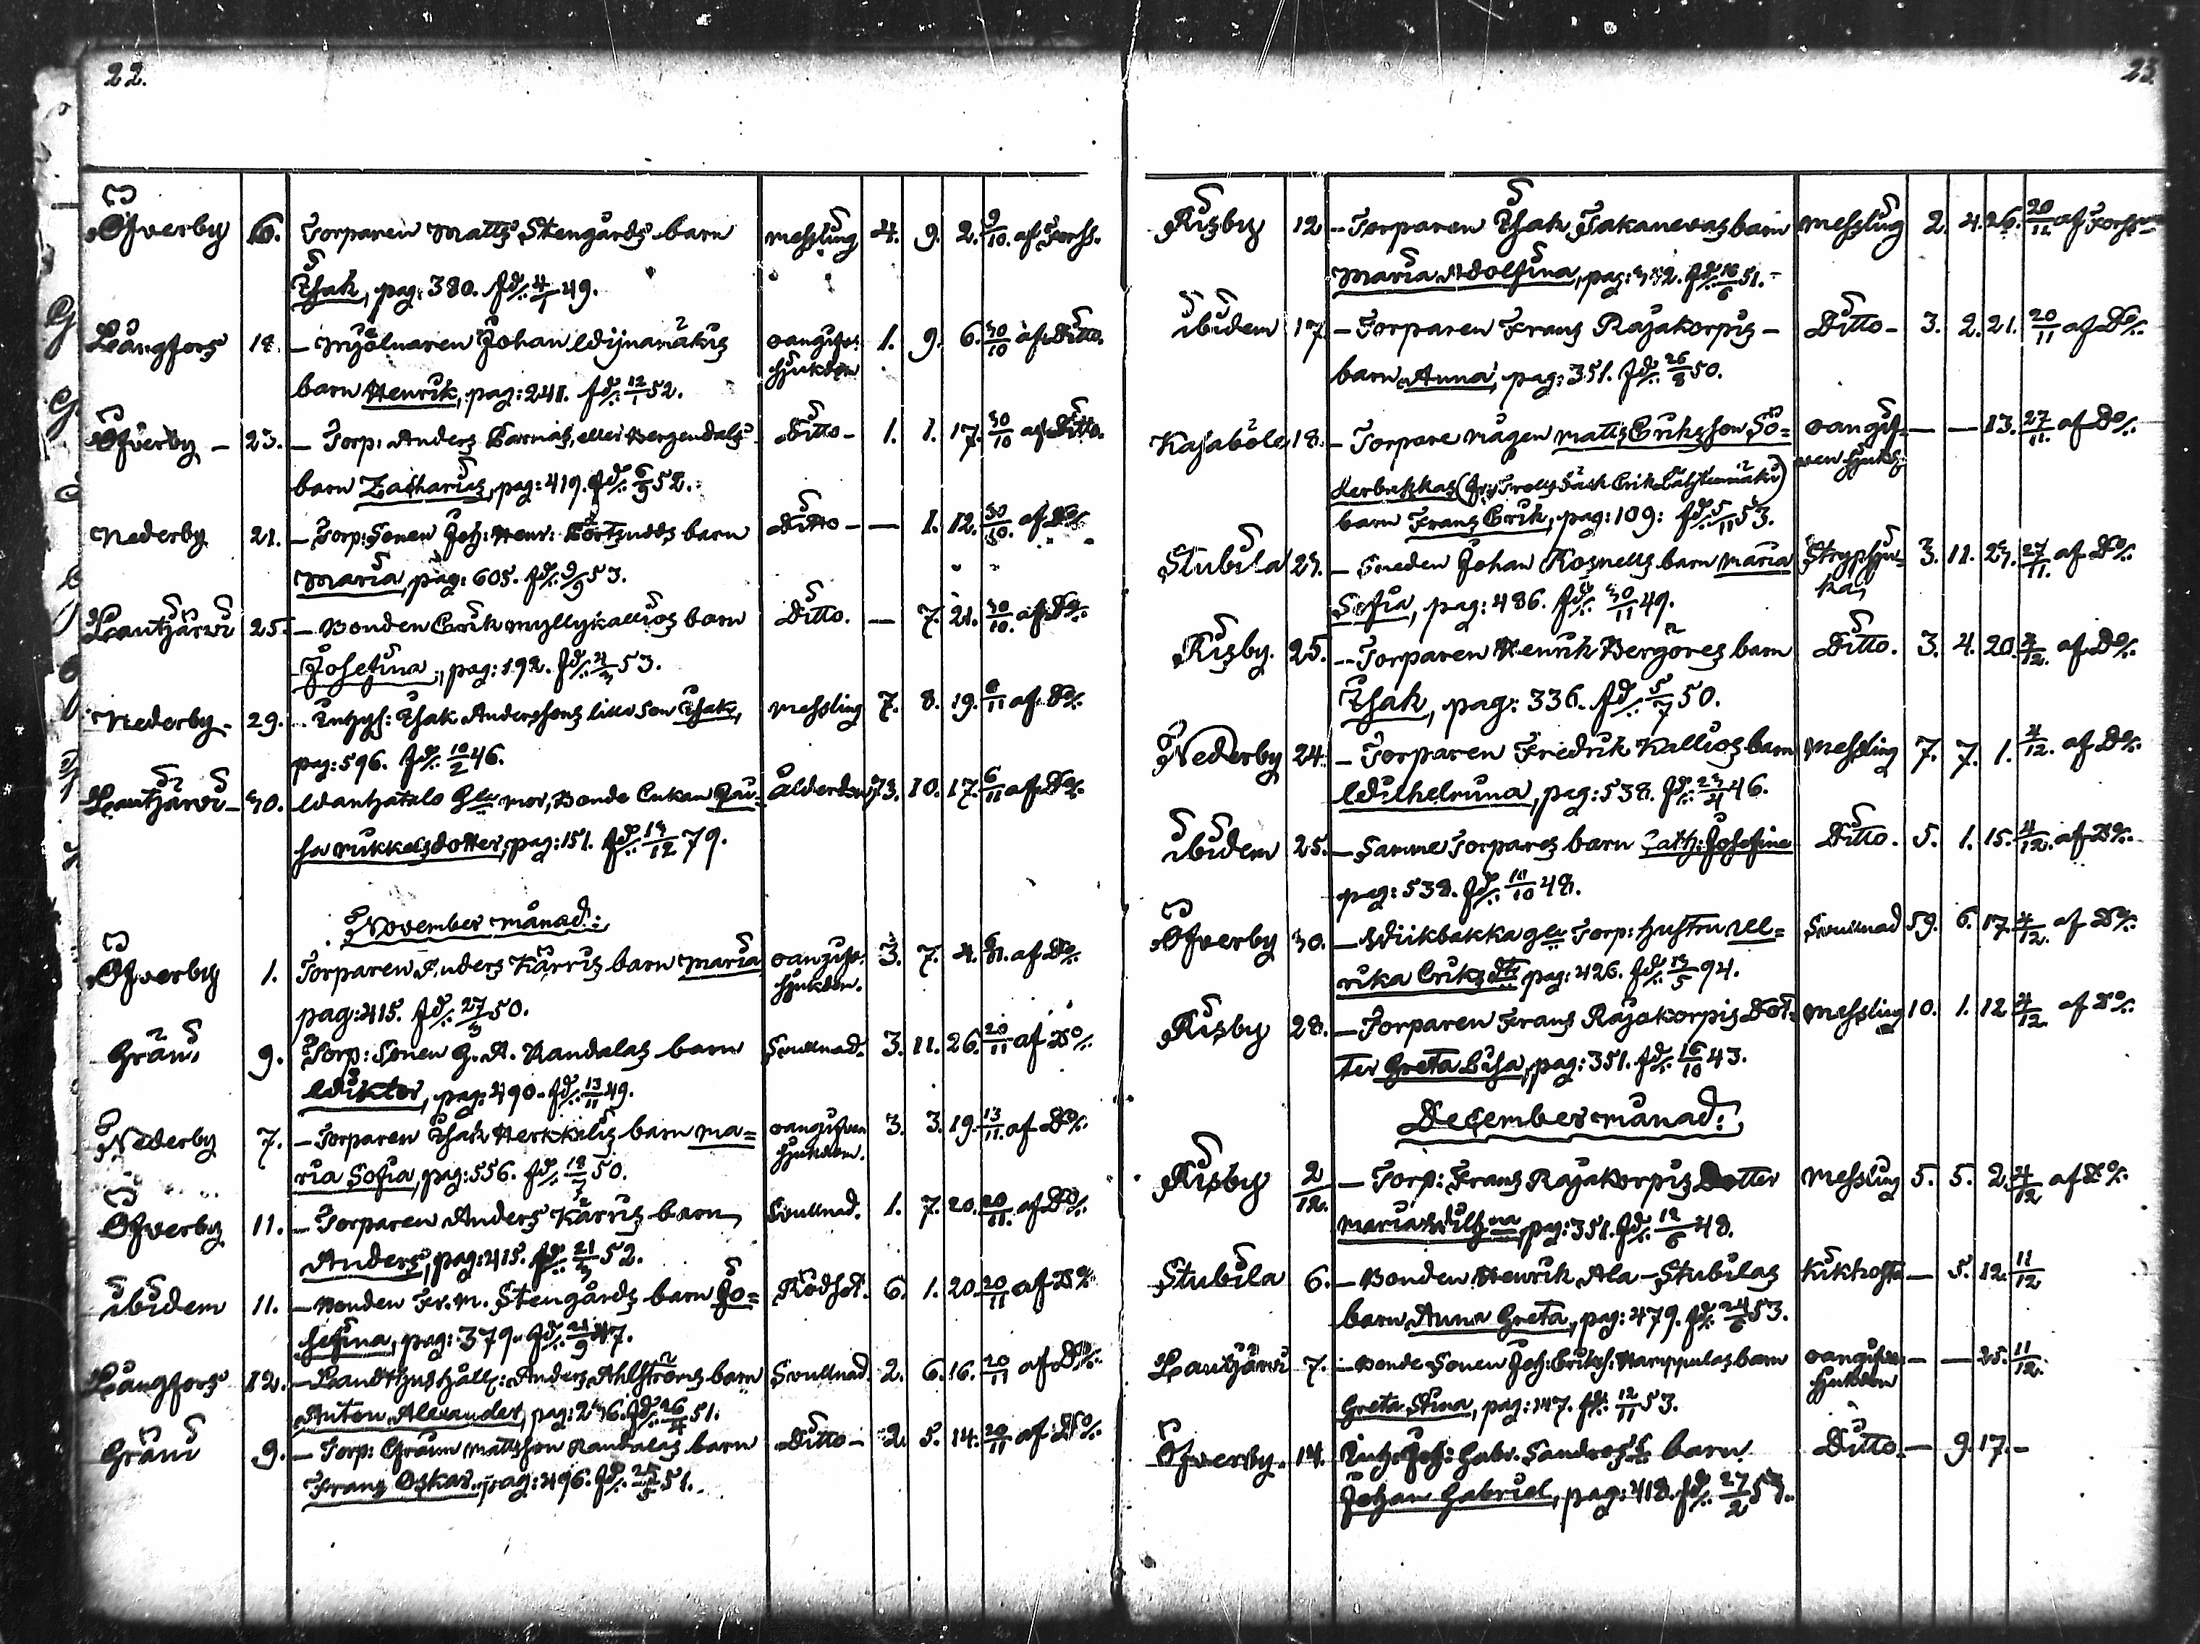 22.
Öfverby 16. Torparen Matts Stengårds barn messling 4. 9. 2. 9/10. af Forss.
Isak, pag: 380. fd/. 4/1 49.
Långfors 18. – Mjölnaren Johan Wijnamäkis oangifv. 1. 9. 6. 30/10 af Ditto.
barn Henrik, pag: 241. fd/. 12/1 52. sjukdom
Öfverby – 23. – Torp: Anders Barnas, eller Bergendals Ditto – 1. 1. 17. 30/10 af Ditto.
barn Zacharias, pag: 419. fd/. 6/9 52.
Nederby 21. – Torp: Sonen Joh: Henr: barn Ditto – – 1. 12. 30/10. af Do/.
Maria, pag: 605. fd/. 9/9 53.
Lantjärwi 25. – Bonden Erik Myllykallios barn Ditto. – 7. 21. 30/10. af Do/.
Josefina, pag: 192. fd/. 4/3 53.
Nederby – 29. – Inhys: Isak Anderssons lilla son Isak, messling 7. 8. 19. 6/11 af Do/.
pag: 596. fd/. 10/2 46.
Lantjärwi – 30. Wantjatalo Gla mor, Bonde Enkan Cai- Ålderdom 73. 10. 17. 6/11 af Do/.
sa Mikkelsdotter, pag: 151. fd/. 13/12 79.
November månad:
Öfverby 1. Torparen Anders Kärris barn Maria oangifv. 3. 7. 4. 6/11. af Do/.
pag: 415. fd/. 27/3 50. sjukdom.
Gräni 9. Torp: Sonen G. A. Randalas barn Svullnad. 3. 11. 26. 20/11 af Do/.
Wiktor, pag: 490. fd/. 13/11 49.
Nederby 7. – Torparen Isak Herkkilis barn Ma= oangifven 3. 3. 19. 13/11. af Do/.
ria Sofia, pag: 556. fd/. 18/7 50. sjukdom.
Öfverby 11. – Torparen Anders Kärris barn Svullnad. 1. 7. 20. 20/11. af Do/.
Anders, pag: 415. fd/. 21/3 52.
ibidem 11. – Bonden Fr. M. Stengårds barn Jo= Rödsot. 6. 1. 20. 20/11 af Do/.
sefina, pag: 379. fd/. 21/9 47.
Långfors 12. – Landthushåll: Anders Ahlströms barn Svullnad. 2. 6. 16. 20/11 af Do/.
Anton Alexander, pag: 236. fd/. 26/4 51.
Gräni 9. – Torp: Efraim Mattsson Randalas barn Ditto – 2. 5. 14. 20/11 af Do/.
Frans Oskar, pag: 496. fd/. 25/5 51.
23.
Risby 12. – Torparen Isak Takanevas barn Messling 2. 4. 26. 20/11 af Forss
Maria Adolfina, pag: 332. fd/. 16/6 51. –
ibidem 17. – Torparen Frans Rajakorpis – Ditto – 3. 2. 21. 20/11 af Do/.
barn Anna, pag: 351. fd/. 26/8 50.
Kasaböle 18. – Torpare mågen Matts Eriksson Sö= oangif= – – 13. 27/11. af Do/.
derbakkas ven sjukd.
barn Frans Erik, pag: 109: fd/. 5/11 53.
Stubila 23. – Smeden Johan Kosnells barn Maria Strypsju= 3. 11. 23. 27/11. af Do/.
Sofia, pag: 486. fd/. 30/11 49. ka,
Risby. 25. – Torparen Henrik Bergöres barn Ditto. 3. 4. 20. 4/12. af Do/.
Isak, pag: 336. fd/. 5/7 50.
Nederby 24. – Torparen Fredrik Kallios barn Messling 7. 7. 1. 4/12. af Do/.
Wilhelmina, pag: 538. fd/. 23/4 46.
ibidem 25. – Samme Torpares barn Cath: Josefina Ditto. 5. 1. 15. 4/12. af Do/.
pag: 538. fd/. 10/10 48.
Öfverby 30. – Wiikbakka gla Torp: hustru Ul= Svullnad 59. 6. 17. 4/12. af Do/.
rika Eriksdtr pag: 426. fd/. 13/5 94.
Risby 28. – Torparen Frans Rajakorpis Dot= Messling 10. 1. 12. 4/12. af Do/.
ter Greta Lisa, pag: 351. fd/. 16/10 43.
December månad:
Risby 2/12. – Torp: Frans Rajakorpis Dotter Messling 5. 5. 2. 4/12 af Do/.
Maria Wilhna, pag: 351. fd/. 12/6 48.
Stubila 6. – Bonden Henrik Ala-Stubilas kikhosta – 5. 12. 11/12
barn Anna Greta, pag: 479. fd/. 24/6 53.
Lantjärwi 7. – Bonde Sonen Joh: Erikss: Harppulas barn oangifven – – 25. 11/12.
Greta Stina, pag: 147. fd/. 12/11 53. sjukdom
Öfverby. 14. Inhs: Joh: Gabr. Sandros barn Ditto. – 9. 17. –
Johan Gabriel, pag: 418. fd/. 27/2 53.